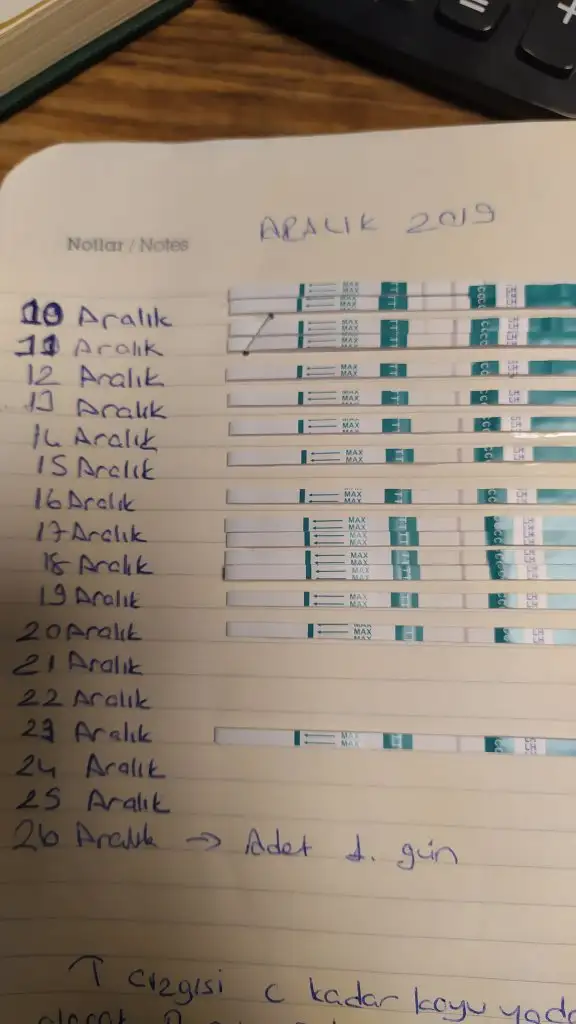 ARALIK 2019
Notlar / Notes
10 Aralık
MAX
MAX
11 Aralık
MAX
MAX
12 Aralık
MAX
MAX
13 Aralık
MAX
MAX
14 Aralık
MAX
MAX
15 Aralık
MAX
16 Aralık
MAX
17 Aralık
MAX
MAX
MAX
18 Aralık
MAX
MAX
MAX
19 Aralık
MAX
MAX
20 Aralık
MAX
MAX
21 Aralık
22 Aralık
23 Aralık
MAX
MAX
24 Aralık
25 Aralık
26 Aralık → Adet 1. gün
T çizgisi C kadar koyu yada